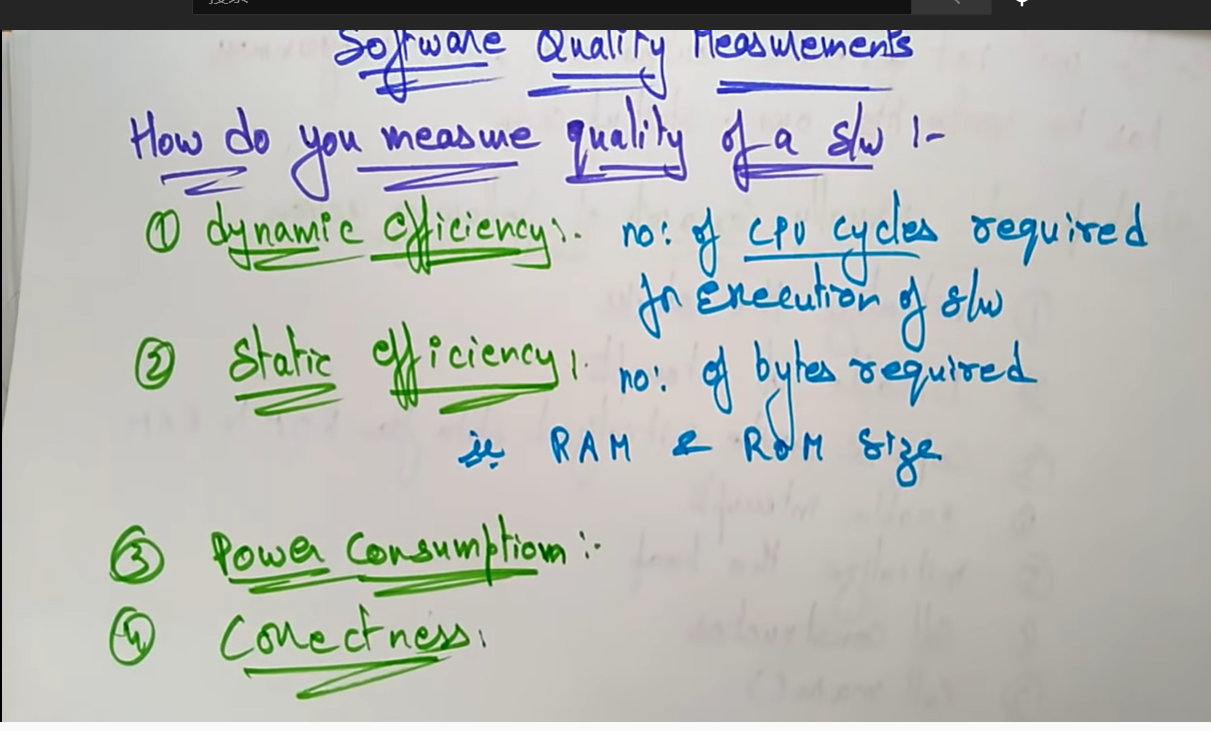 搜索
Software Quality Measurements
How do you measure quality of a s/w :-
① dynamic efficiency :- no: of CPU cycles required
for Execution of s/w
② Static efficiency :- no: of bytes required
ie RAM & ROM size
③ Power Consumption :-
④ Correctness :